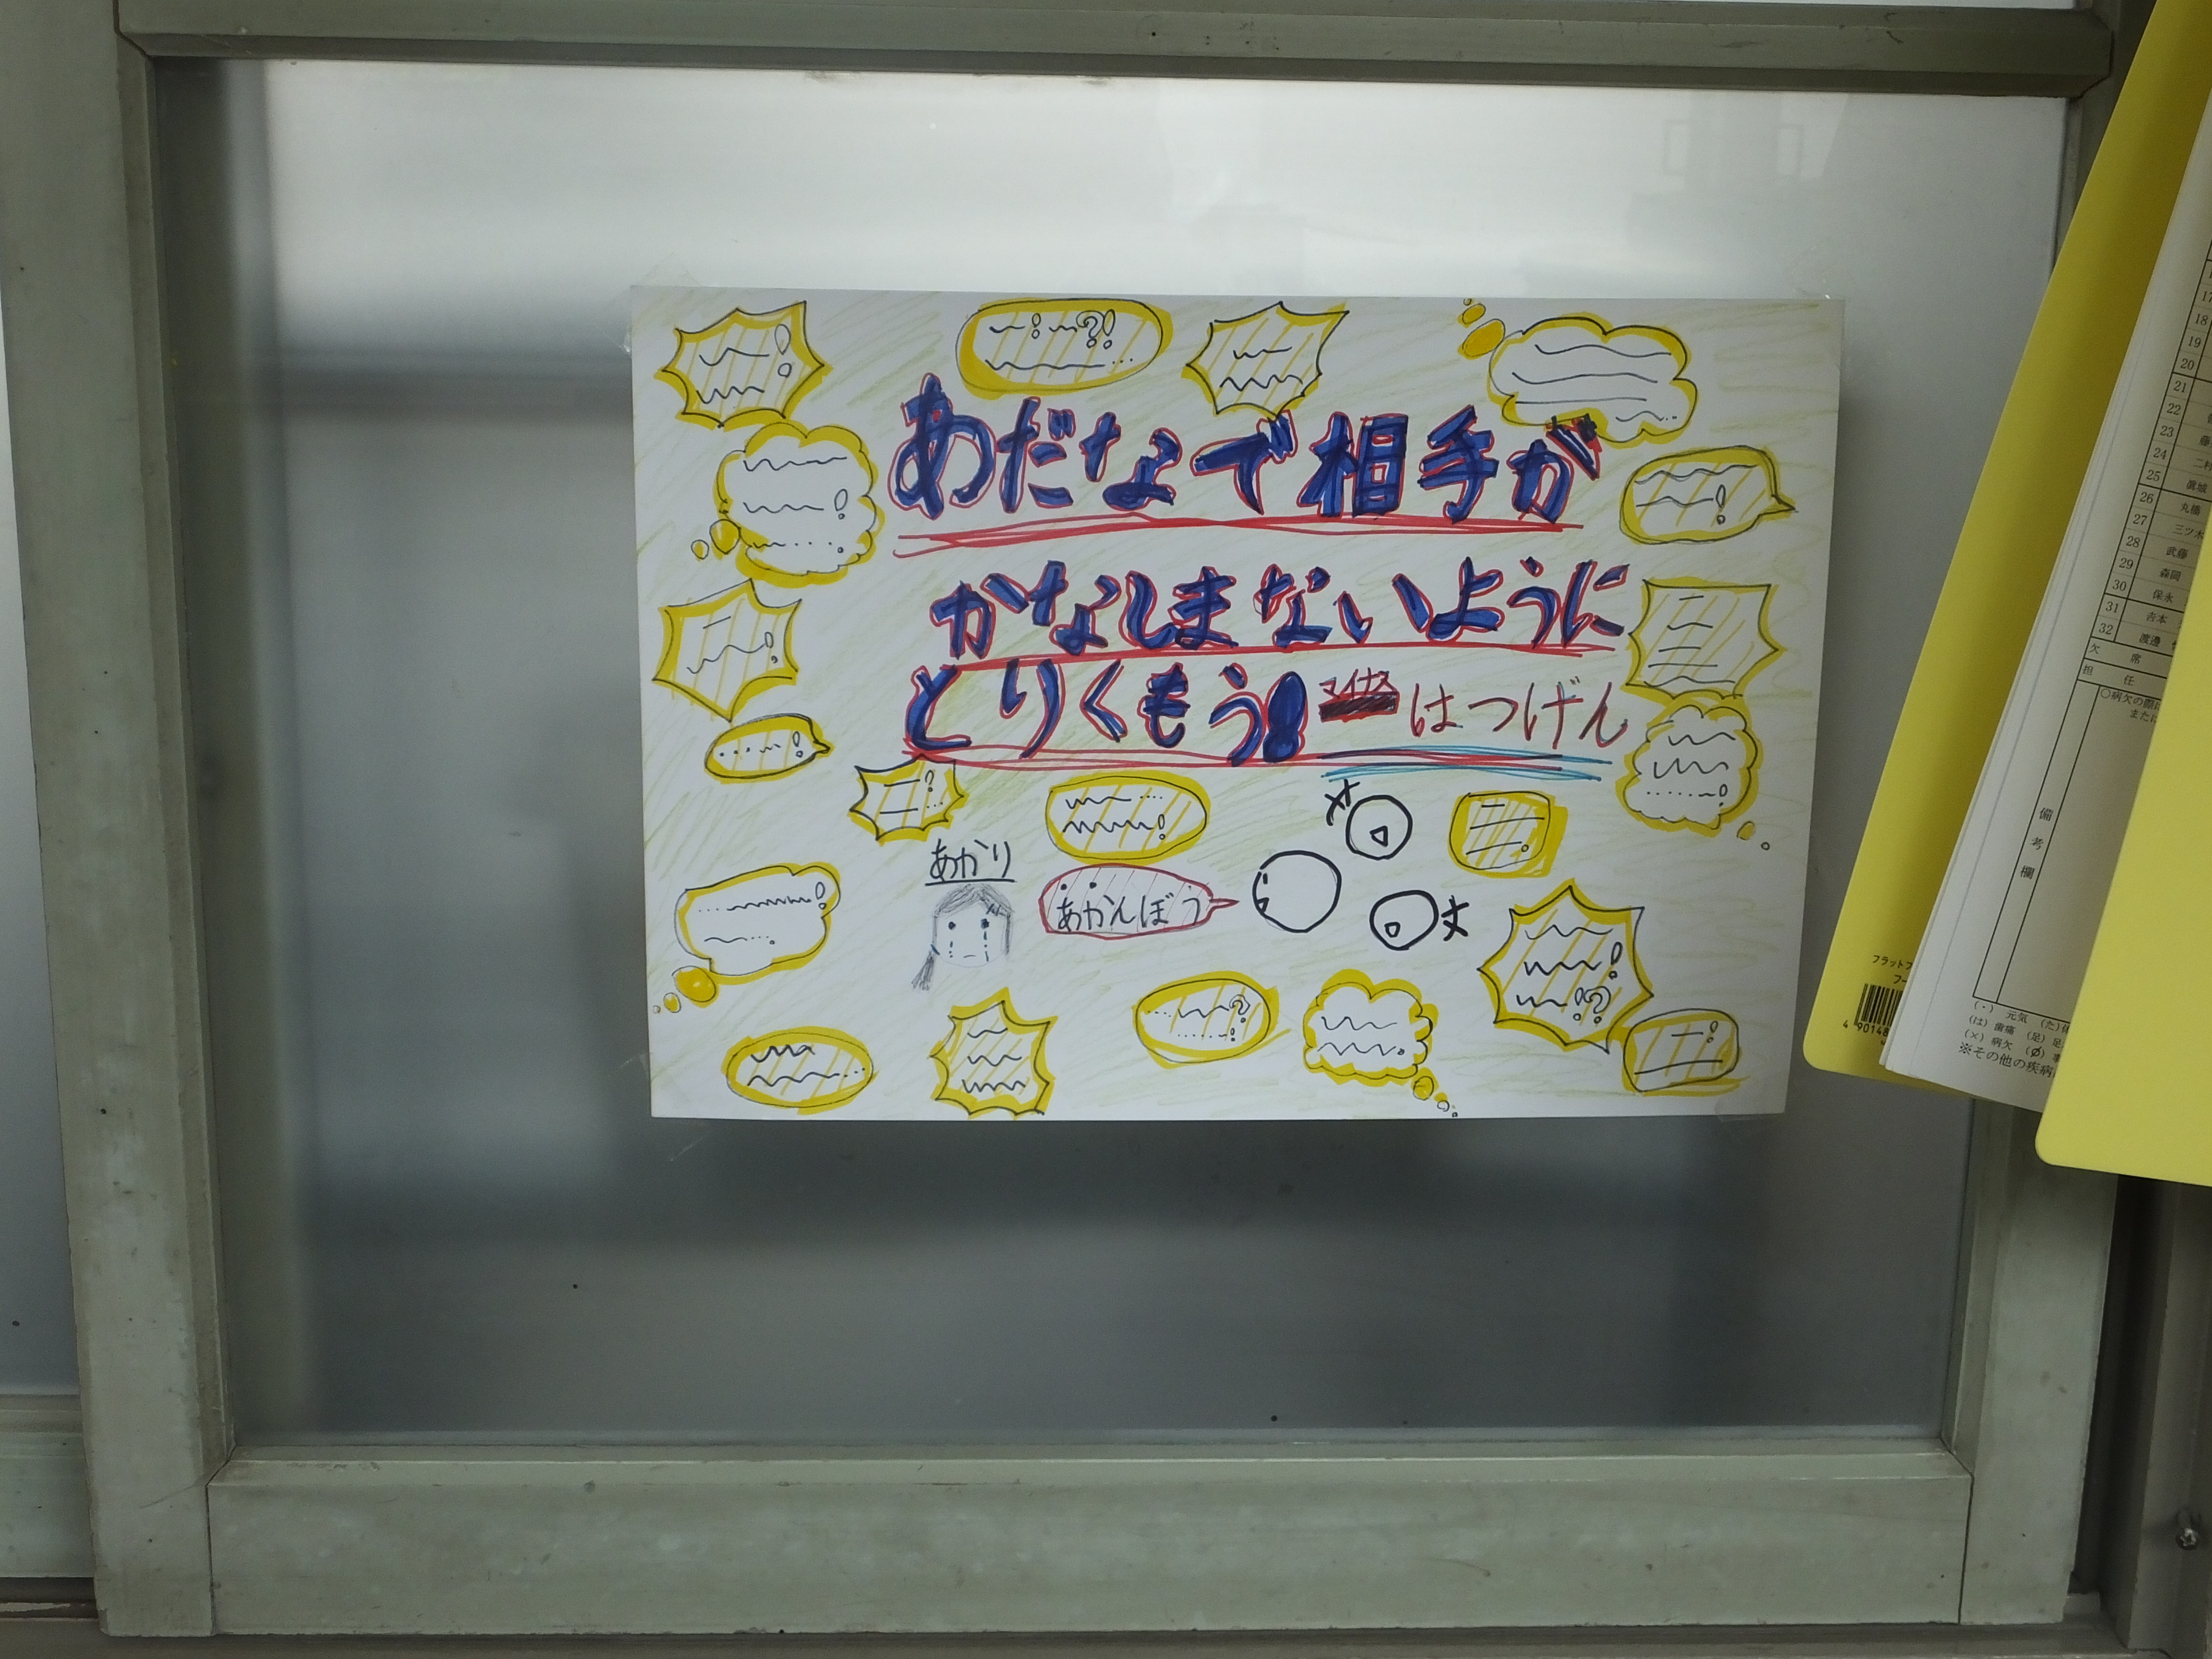 あだなで相手が
かなしまないように
とりくもう! マイナスーはつげん
あかり
あかんぼう
17
18
19
20
21
22
23
24
25
26 丸橋
27 三ツ木
28 武藤
29 森岡
30 保永
31 吉本
32 渡邊
欠席
担任
○病欠の際は
または
備考欄
(・) 元気 (た)
(は) 歯痛 (足) 足
(×) 病欠 (〆) 事
※その他の疾病
フラットフ
4 90148